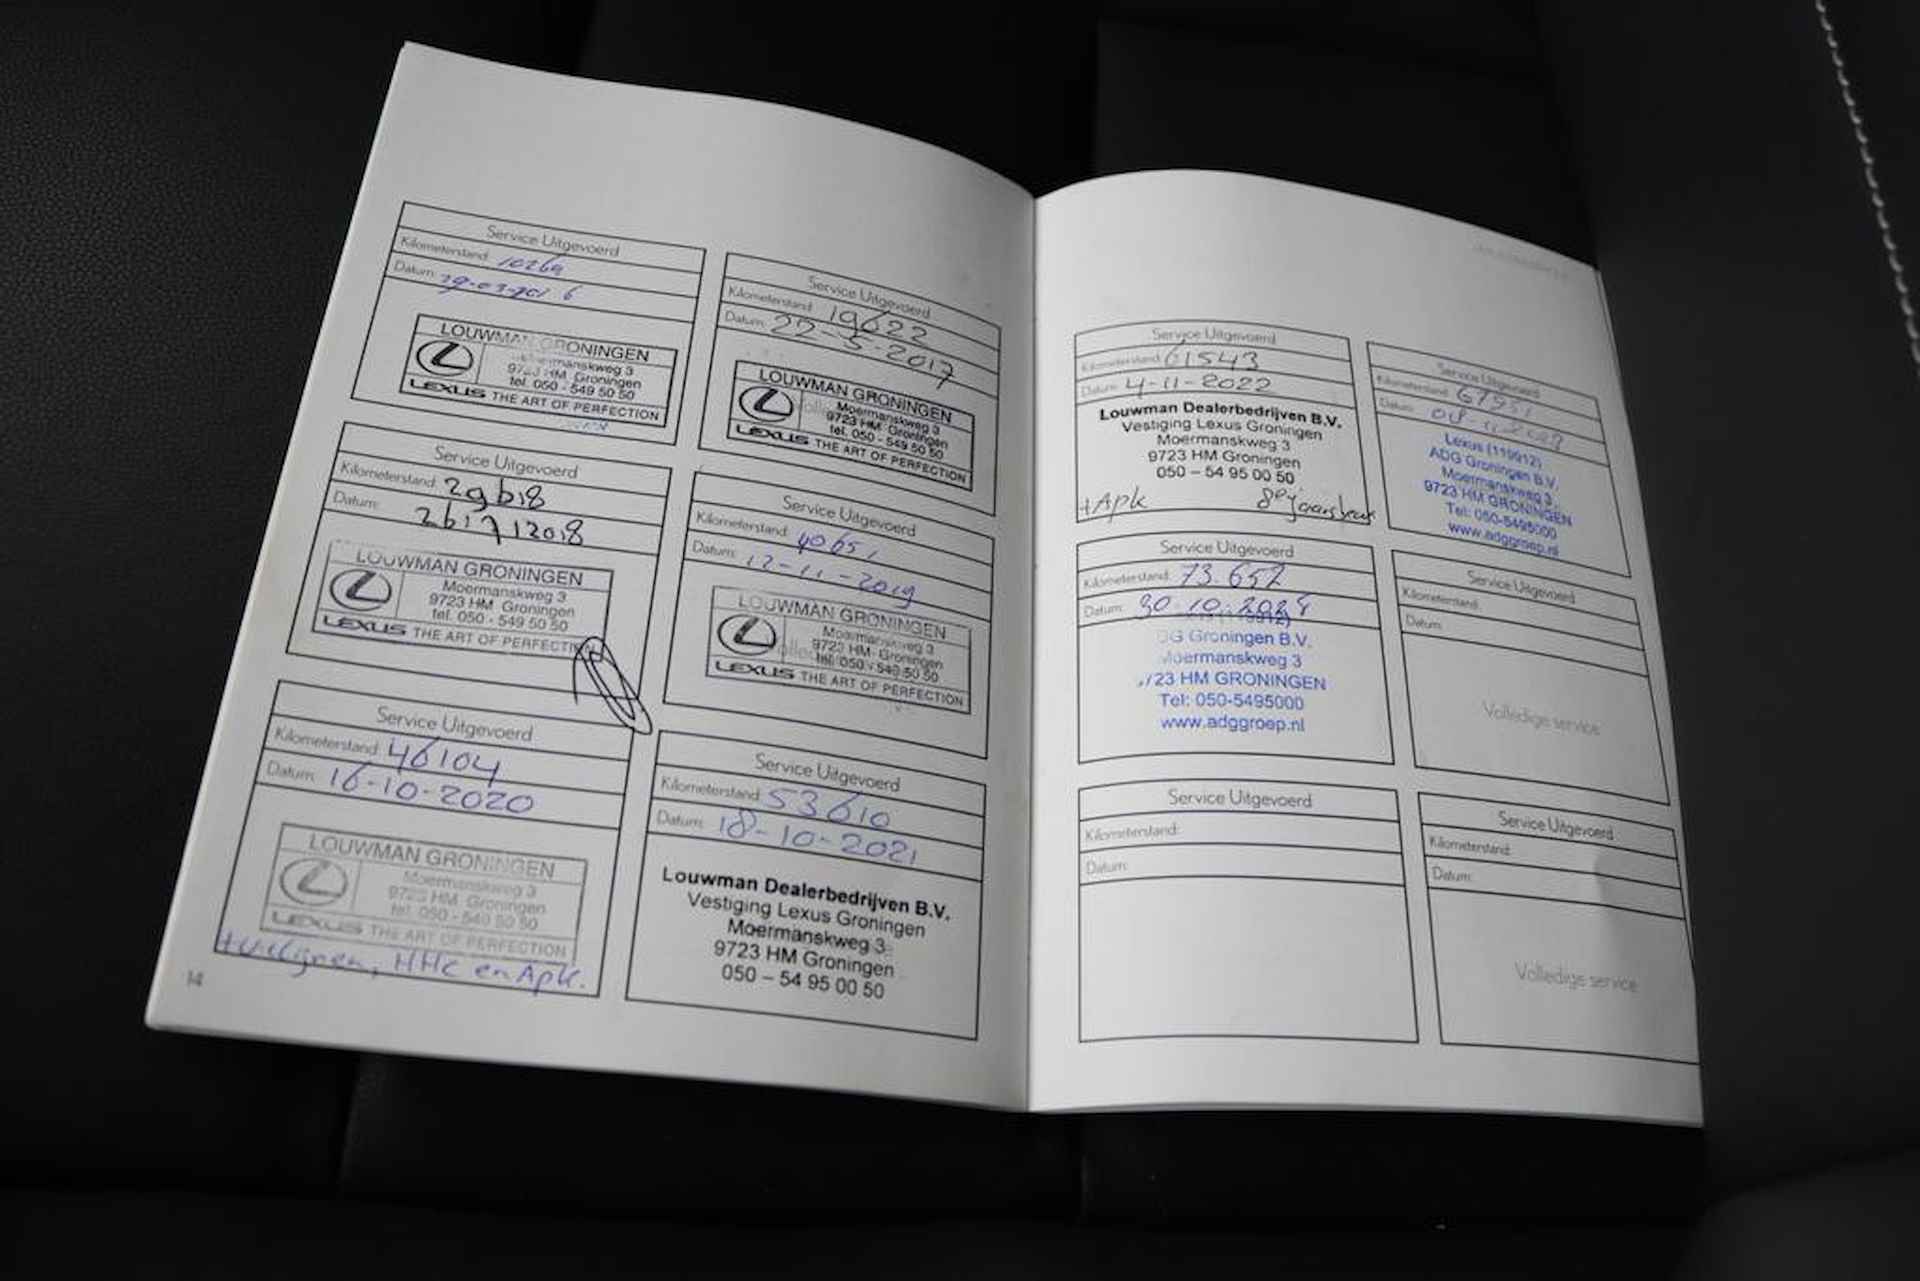 Service Uitgevoerd
Kilometerstand: 10269
Datum: 29-03-2016
LOUWMAN GRONINGEN
Moermanskweg 3
9723 HM Groningen
tel. 050 - 549 50 50
LEXUS THE ART OF PERFECTION
Service Uitgevoerd
Kilometerstand: 19622
Datum: 22-5-2017
LOUWMAN GRONINGEN
Moermanskweg 3
9723 HM Groningen
tel. 050 - 549 50 50
LEXUS THE ART OF PERFECTION
Service Uitgevoerd
Kilometerstand: 29618
Datum: 26/7/2018
LOUWMAN GRONINGEN
Moermanskweg 3
9723 HM Groningen
tel. 050 - 549 50 50
LEXUS THE ART OF PERFECTION
Service Uitgevoerd
Kilometerstand: 40651
Datum: 12-11-2019
LOUWMAN GRONINGEN
Moermanskweg 3
9723 HM Groningen
tel. 050 - 549 50 50
LEXUS THE ART OF PERFECTION
Service Uitgevoerd
Kilometerstand: 46104
Datum: 16-10-2020
LOUWMAN GRONINGEN
Moermanskweg 3
9723 HM Groningen
tel. 050 - 549 50 50
LEXUS THE ART OF PERFECTION
+ uitlijnen, HHC en Apk.
Service Uitgevoerd
Kilometerstand: 53610
Datum: 18-10-2021
Louwman Dealerbedrijven B.V.
Vestiging Lexus Groningen
Moermanskweg 3
9723 HM Groningen
050 – 54 95 00 50
14
Service Uitgevoerd
Kilometerstand: 61543
Datum: 4-11-2022
Louwman Dealerbedrijven B.V.
Vestiging Lexus Groningen
Moermanskweg 3
9723 HM Groningen
050 – 54 95 00 50
+Apk 8e jaarsbeurt
Service Uitgevoerd
Kilometerstand: 67951
Datum:
Lexus (119912)
ADG Groningen B.V.
Moermanskweg 3
9723 HM GRONINGEN
Tel: 050-5495000
www.adggroep.nl
Service Uitgevoerd
Kilometerstand: 73.652
Datum: 30-10-2024
DG Groningen B.V.
Moermanskweg 3
9723 HM GRONINGEN
Tel: 050-5495000
www.adggroep.nl
Service Uitgevoerd
Kilometerstand:
Datum:
Volledige service
Service Uitgevoerd
Kilometerstand:
Datum:
Service Uitgevoerd
Kilometerstand:
Datum:
Volledige service